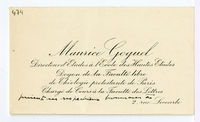 474
Maurice Goguel
Directeur d'Études à l'École des Hautes Études
Doyen de la Faculté libre
de Théologie protestante de Paris
Chargé de Cours à la Faculté des Lettres
2 rue